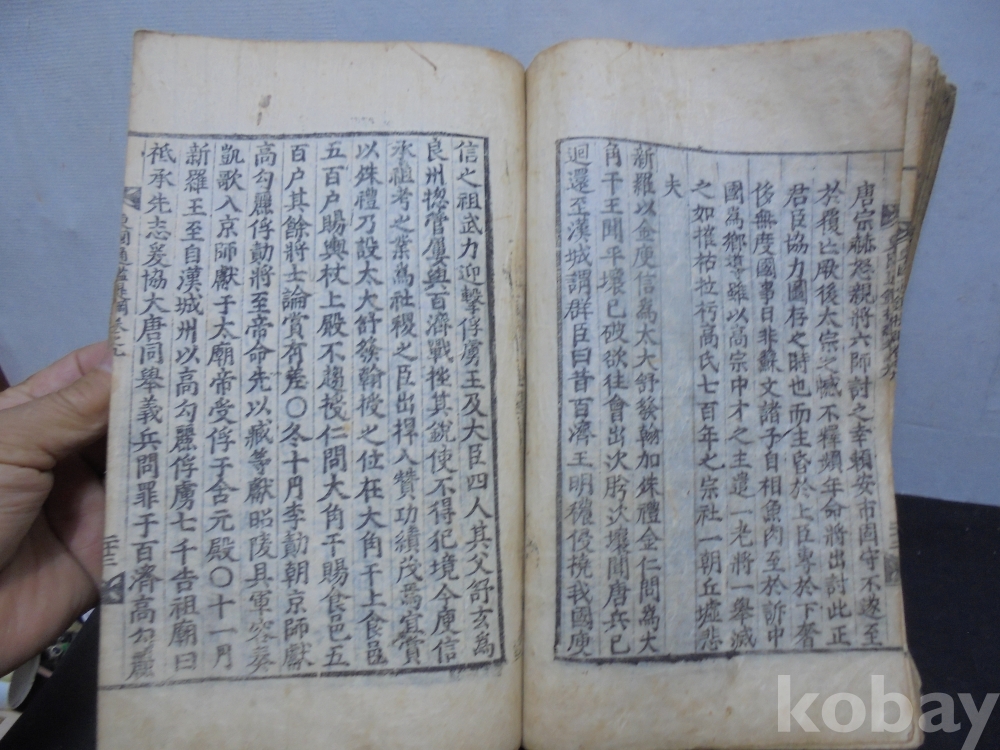 唐宗赫怒親將六師討之幸賴安市固守不遂至
於覆亡厥後太宗之憾不釋頻年命將出討此正
君臣協力圖存之時也而主昏於上臣專於下奢
侈無度國事日非蘇文諸子自相魚肉至於訴中
國爲鄉導雖以高宗中才之主遣一老將一舉滅
之如摧枯拉朽高氏七百年之宗社一朝丘墟悲
夫
新羅以金庾信爲太大舒發翰加殊禮金仁問爲大
角干王聞平壤已破欲往會出次肹次壤聞唐兵已
迴還至漢城謂群臣曰昔百濟王明穠侵撓我國庾
信之祖武力迎擊俘虜王及大臣四人其父舒玄爲
良州摠管屢與百濟戰挫其銳使不得犯境今庾信
承祖考之業爲社稷之臣出捍入贊功績茂焉宜賞
以殊禮乃設太大舒發翰授之位在大角干上食邑
五百户賜輿杖上殿不趨授仁問大角干賜食邑五
百户其餘將士論賞有差〇冬十月李勣朝京師獻
高勾麗俘勣將至帝命先以臧等獻昭陵具軍容奏
凱歌入京師獻于太廟帝受俘于含元殿〇十一月
新羅王至自漢城州以高勾麗俘虜七千告祖廟曰
祗承先志爰協大唐同舉義兵問罪于百濟高勾麗
卷之九
二十三
kobay